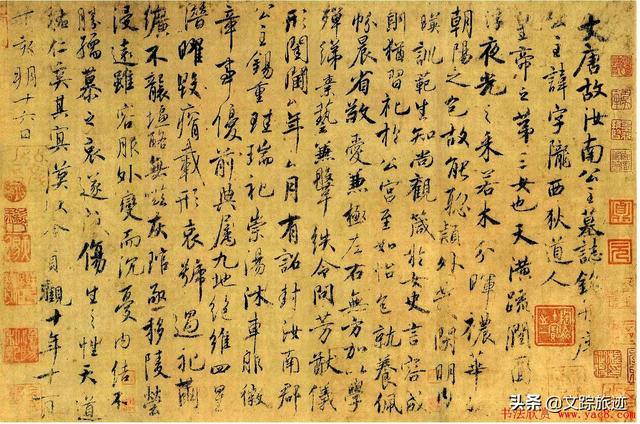 大唐故汝南公主墓誌銘并序
公主諱字隴西狄道人
皇帝之第三女也天潢疏潤圓
折浮夜光之采若木分暉穠華照
朝陽之色故能聰穎外發閑明內
暎訓範生知尚觀箴於女史言容成
則猶習礼於公宮至如怡色就養佩
帉晨省敬愛兼極左右無方加以學
殫綈素藝兼鞶紩令問芳猷儀
形閨閫厶年厶月有詔封汝南郡
公主錫重珪瑞礼崇湯沐車服徽
章事優前典屬九地絕維四星
潛曜毀瘠載形哀號過礼繭
纊不襲塩酪無嗞灰琯亟移陵塋
浸遠雖容服外變而沉憂內結不
勝孺慕之哀遂成傷生之性天道
祐仁奚其冥漠以今貞觀十年十一月
十六日
头条 @文踪旅迹
书法欣赏 www.yac8.com